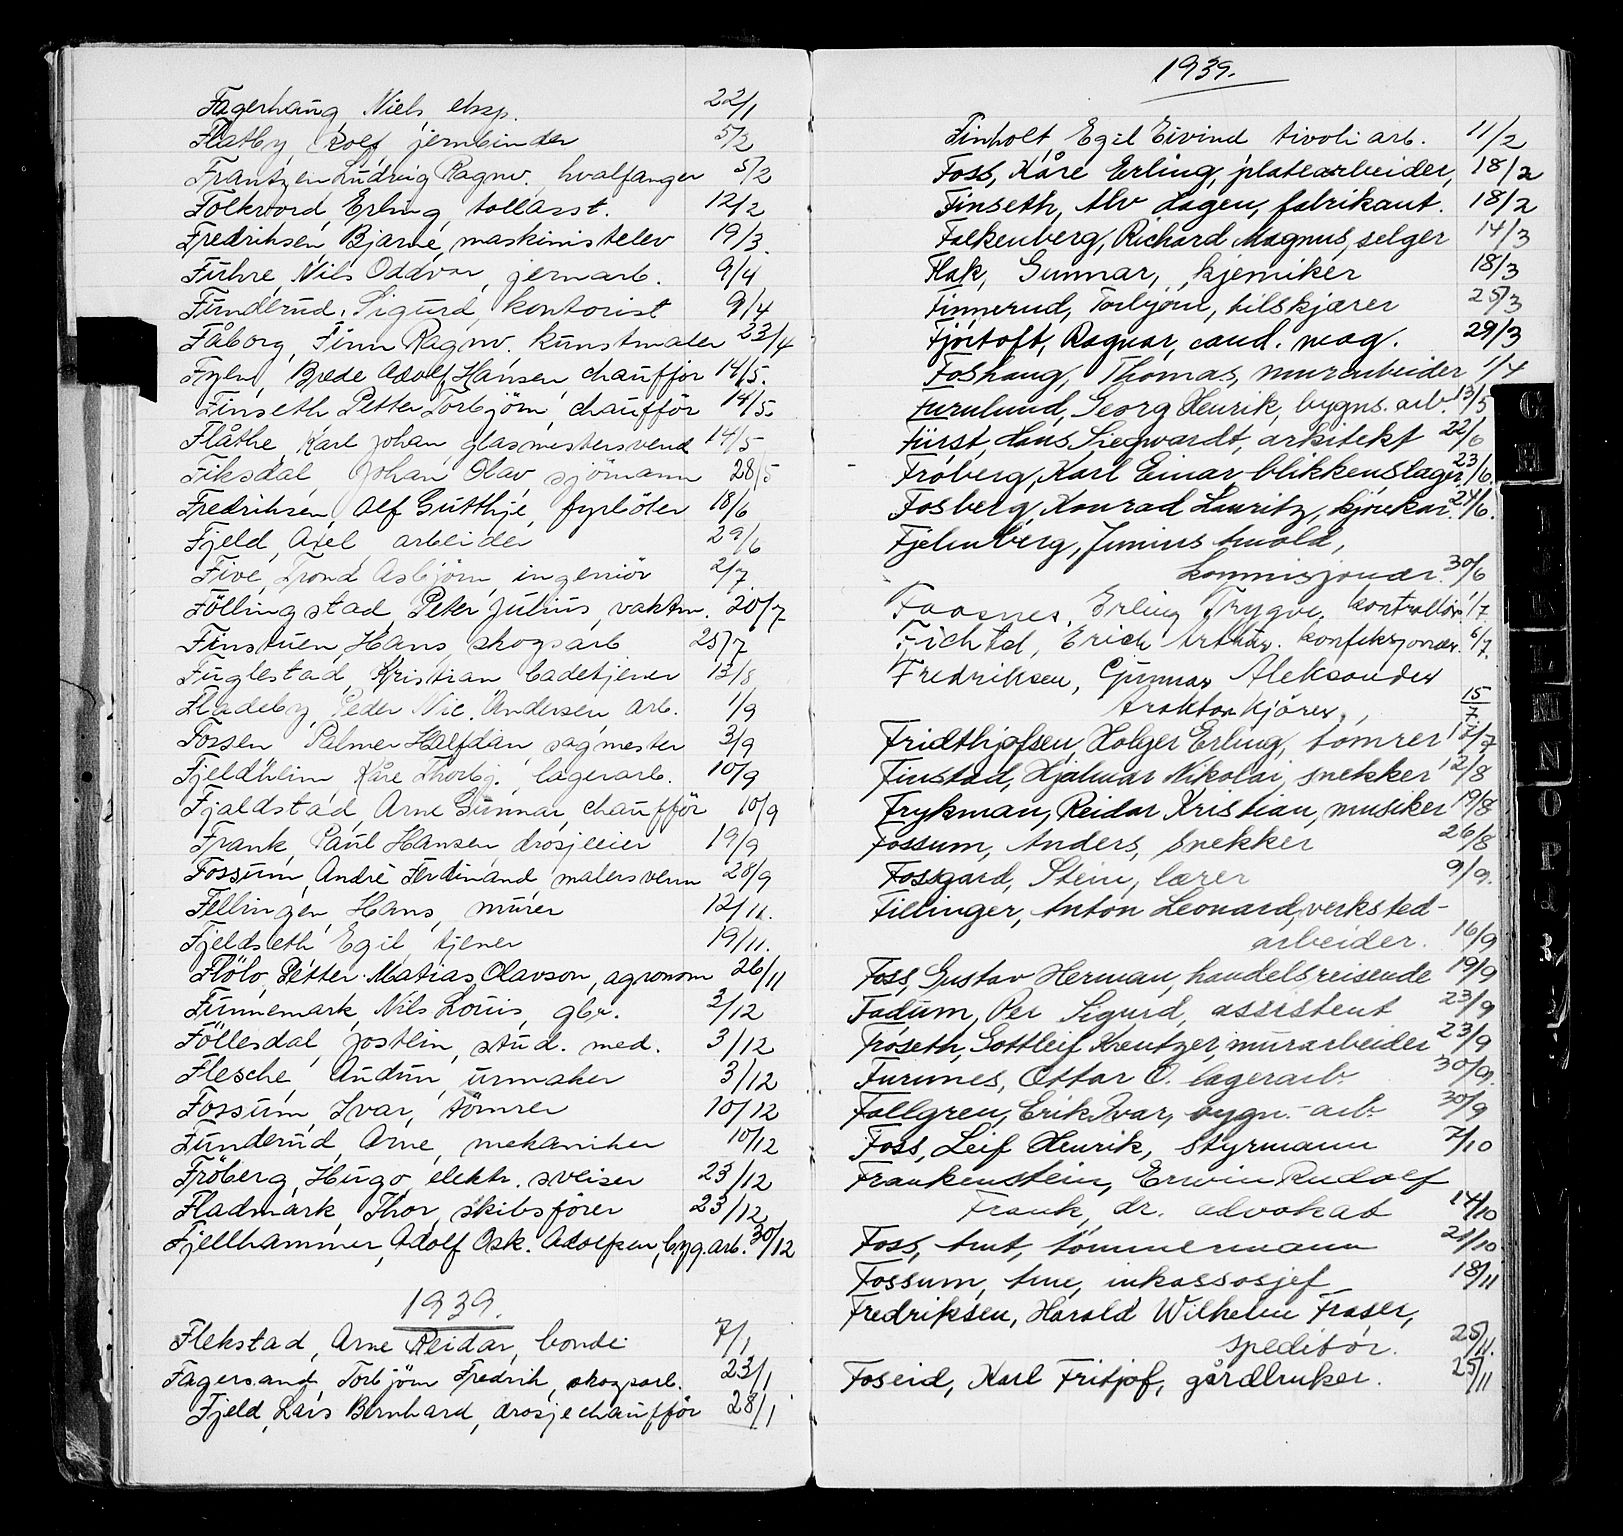 Fagerhaug, Niels, eksp. 22/1
Flatby Rolf jernbinder 5/2
Frantzen Ludvig Ragnv. hvalfanger 5/2
Folkvord, Erling, tollasst. 12/2
Fredriksen Bjarne, maskinistelev 19/3
Fuhre, Nils Oddvar, jernarb. 9/4
Funderud, Sigurd, kontorist 9/4
Fåborg, Finn Ragnv. kunstmaler 23/4
Fyen, Brede Adolf Hansen, chaufför 14/5.
Finseth Petter Torbjörn, chaufför 14/5.
Flåthe, Karl Johan glasmestersvend 14/5
Fiksdal Johan Olav sjömann 28/5
Fredriksen, Alf Gutthje, fyrböter 18/6
Fjeld, Axel arbeider 29/6
Five, Trond Asbjörn, ingeniör 2/7
Föllingstad, Peter Julius, vaktm. 20/7
Finstuen, Hans, skogsarb. 25/7
Fuglestad, Kristian badetjener 13/8
Fladeby, Peder Nic. Andersen, arb. 1/9
Forsen Palmer Halfdan, sagmester 3/9
Fjeldheim Kåre Thorbj. lagerarb. 10/9
Fjaldstad, Arne Gunnar, chaufför 10/9
Frank, Paul Hansen, drosjeeier 19/9
Fossum, André Ferdinand, malersvenn 28/9
Fellingen, Hans, murer 12/11.
Fjeldseth Egil, tjener 19/11.
Flölo, Petter Matias Olavson, agronom 26/11
Funnemark, Nils Louis, gbr. 3/12
Föllesdal, Jostlin, stud. med. 3/12
Flesche, Audun, urmaker 3/12
Fossum, Ivar, tömrer 10/12
Funderud, Arne, mekaniker 10/12
Fröberg, Hugo, elektr. sveiser 23/12
Fladmark, Thor, skibsförer 23/12
Fjellhammer, Adolf Osk. Adolfsen, byg.arb. 30/12
1939.
Flekstad, Arne Reidar, bonde 7/1
Fagersand, Torbjörn Fredrik, skogsarb. 23/1
Fjeld, Lars Bernhard, drosjechaufför 28/1
1939.
Finholt, Egil Eivind tivoli arb. 11/2
Foss, Kåre Erling, platearbeider, 18/2
Finseth, Alv Hagen, fabrikant. 18/2
Falkenberg, Richard Magnus, selger 14/3
Flak, Gunnar, kjemiker 18/3
Finnerud, Torbjörn, tilskjærer 25/3
Fjörtoft, Ragnar, cand. mag. 29/3
Foshaug, Thomas, murarbeider 1/4
Furulund, Georg Henrik, bygns. arb. 13/5
Fürst, Hans Siegwardt, arkitekt 22/6
Fröberg, Karl Einar blikkenslager 23/6.
Fosberg, Konrad Lauritz, kjörekar. 24/6.
Fjelnberg, Junius Arnold,
kommisjonær. 30/6
Foosnes, Erling Trygve, kontrollör 1/7
Fichtd, Erich Arthur. konfeksjonær. 6/7.
Fredriksen, Gunnar Aleksander
traktorkjörer, 15/7
Fridthjofsen, Holger Erling, tömrer 17/7
Finstad, Hjalmar Nikolai, snekker 12/8
Frykman, Reidar Kristian, musiker 19/8
Fossum, Anders, snekker 26/8
Fosgard, Stein, lærer 9/9.
Fillinger, Anton Leonard, verksted-
arbeider. 16/9
Foss, Gustav Herman, handelsreisende 19/9
Fadum, Per Sigurd, assistent 23/9
Fröseth, Gottleif Kreutzer, murarbeider 23/9
Furunes, Ottar O. lagerarb. 30/9.
Fallgren, Erik Ivar, bygn.-arb. 30/9
Foss, Leif Henrik, styrmann 7/10
Frankenstein, Erwin Rudolf
Frank, dr. advokat 14/10
Foss, Amt, tömmermann 21/10
Fossum, Arne, inkassosjef 18/11
Fredriksen, Harald Wilhelm Fraser,
speditör. 25/11.
Foseid, Karl Fritjof, gårdbruker. 25/11
G
H
I
J
K
L
M
N
O
P